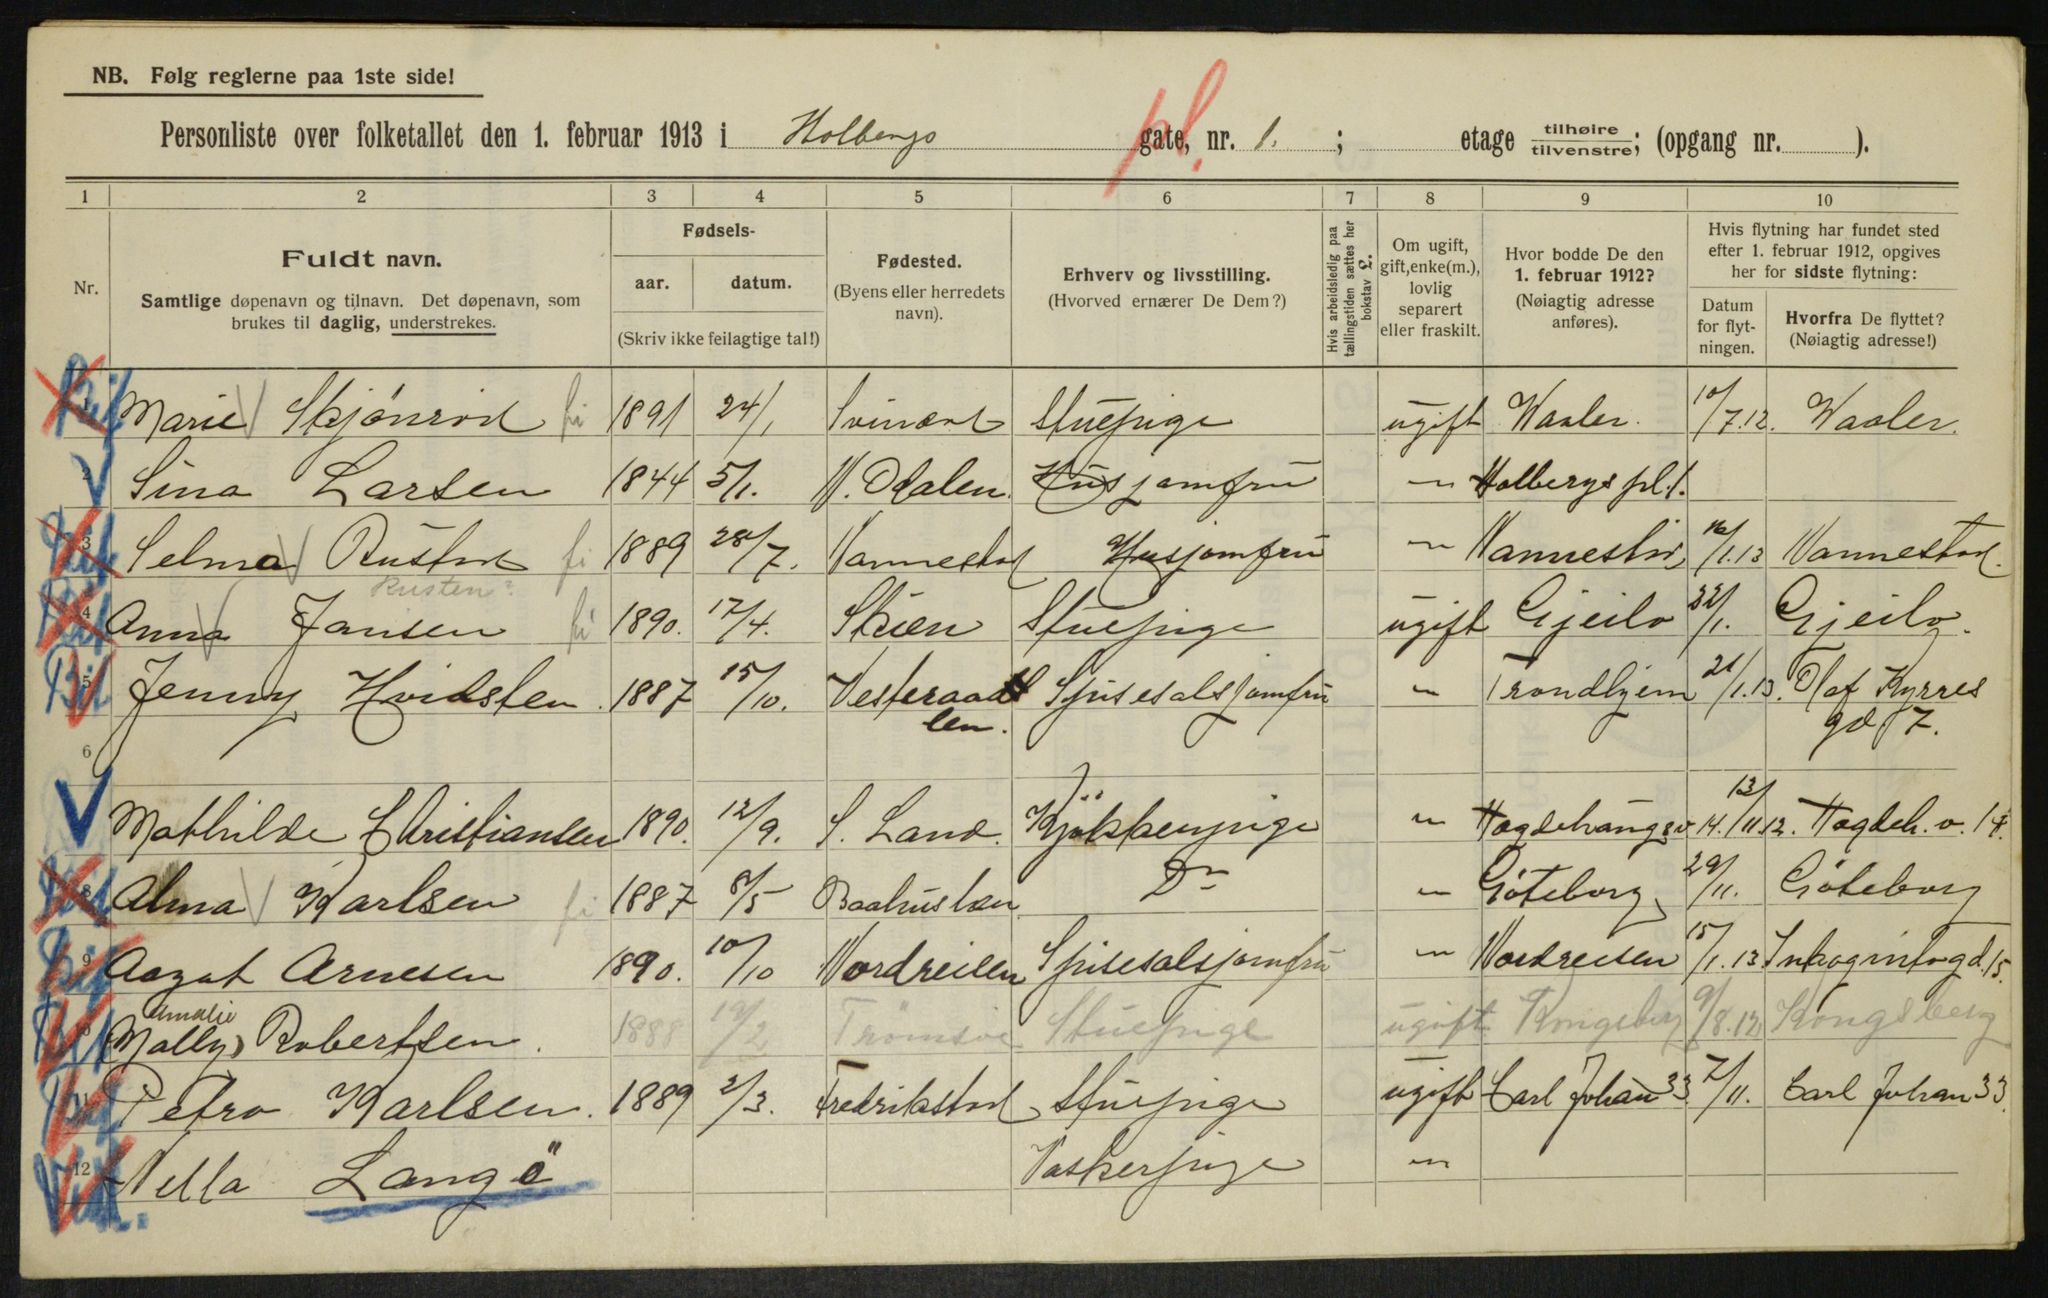 NB. Følg reglerne paa 1ste side!
Personliste over folketallet den 1. februar 1913 i Holbergs pl. gate, nr. 1. ; etage tilhøire tilvenstre; (opgang nr. ).
1 2 3 4 5 6 7 8 9 10
Nr.
Fuldt navn.
Samtlige døpenavn og tilnavn. Det døpenavn, som
brukes til daglig, understrekes.
Fødsels-
aar. datum.
(Skriv ikke feilagtige tal!)
Fødested.
(Byens eller herredets
navn).
Erhverv og livsstilling.
(Hvorved ernærer De Dem?)
Hvis arbeidsledig paa
tællingstiden sættes her
bokstav L.
Om ugift,
gift, enke(m.),
lovlig
separert
eller fraskilt.
Hvor bodde De den
1. februar 1912?
(Nøiagtig adresse
anføres).
Hvis flytning har fundet sted
efter 1. februar 1912, opgives
her for sidste flytning:
Datum
for flyt-
ningen.
Hvorfra De flyttet?
(Nøiagtig adresse!)
1 Marie Skjönrod fi 1891 24/1 Svinæs Stuepige ugift Waaler. 10/7.12. Waaler.
2 Sina Larsen 1844 5/1. N. Odalen. Husjomfru " Holbergs pl. 1.
3 Selma Rustad fi 1889 28/7. Vannestad Husjomfru " Vannestad 16/1.13 Vannestad.
Rusten?
4 Anna Jansen fi 1890. 17/4. Skien Stuepige ugift Gjeilo 22/1. Gjeilo.
5 Jenny Hvidsten. 1887 15/10. Vesteraad Spisesalsjomfru " Trondhjem 21/1.13. Olaf Kyrres
len. gd. 7.
6
Mathilde Christiansen 1890. 12/9. S. Land. Kjökkenpige " Hægdehaugsv 14. 13/11.12. Hægdeh. v. 14.
8 Alma Karlsen fi 1887 8/5 Baahuslæn Do " Göteborg 29/11. Göteborg
9 Aagot Arnesen 1890. 10/10 Nordreisen Spisesalsjomfru " Nordreisen 15/1.13 Inkognitogd. 15.
Amalie
10 (Mally) Robertsen. 1888 19/2 Tromsöe Stuepige ugift Kongsberg 9/8.12 Kongsberg
11 Petra Karlsen. 1889 2/3. Fredrikstad Stuepige ugift Carl Johan 33 7/11. Carl Johan 33.
12 Nella Langö Vaskerpige "